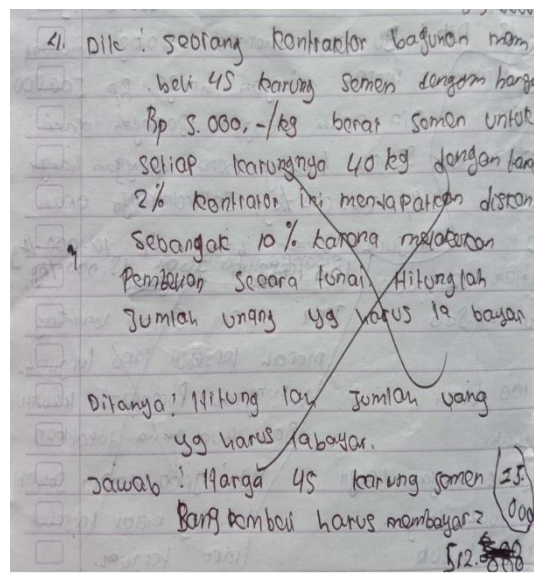 4. Dik : Seorang kontraktor bagunan mem
beli 45 karung semen dengan harga
Rp 5.000,-/kg berat semen untuk
setiap karungnya 40 kg dengan tara
2% kontrator ini mendapatkan diskon
sebangak 10% karena melakukan
Pembelian secara tunai. Hitunglah
Jumlah unang yg harus ia bayar
Ditanya : Hitung lah Jumlah uang
yg harus iabayar.
Jawab : Harga 45 karung semen 25.
000
Bang pembeli harus membayar?
512.